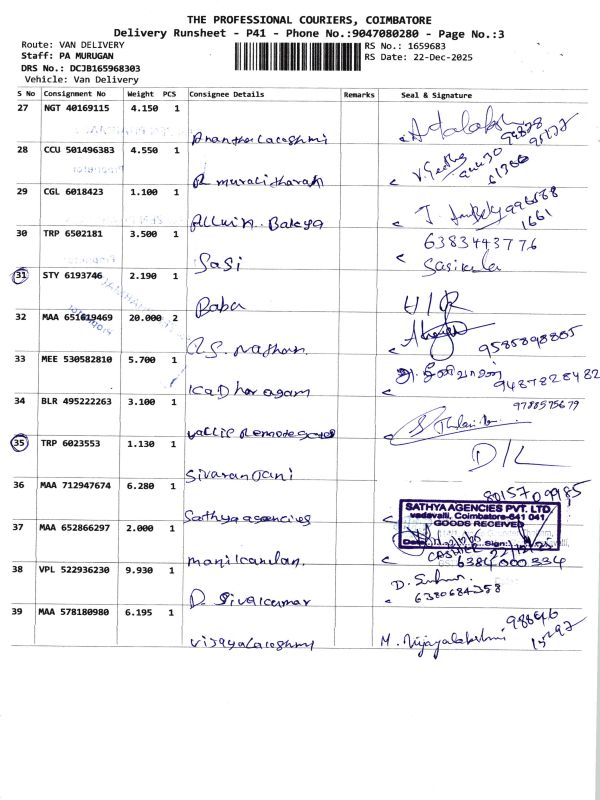 THE PROFESSIONAL COURIERS, COIMBATORE
Delivery Runsheet - P41 - Phone No.:9047080280 - Page No.:3
Route: VAN DELIVERY
RS No.: 1659683
Staff: PA MURUGAN
RS Date: 22-Dec-2025
DRS No.: DCJB165968303
Vehicle: Van Delivery
S No Consignment No Weight PCS Consignee Details Remarks Seal & Signature
27 NGT 40169115 4.150 1 Ananthalacoshmi
28 CCU 501496383 4.550 1 R muralitharan V. Geetha
29 CGL 6018423 1.100 1 1661
30 TRP 6502181 3.500 1 Sasi 6383443776
Sasikala
31 STY 6193746 2.190 1 Baba H/R
32 MAA 651619469 20.000 2 9585898885
33 MEE 530582810 5.700 1 அ. சீனிவாசன்
9487828482
34 BLR 495222263 3.100 1 9788575679
35 TRP 6023553 1.130 1 Sivaranjani D/L
36 MAA 712947674 6.280 1 Sathya agencies 8015709985
SATHYA AGENCIES PVT. LTD.
vadavalli, Coimbatore-641 041
GOODS RECEIVED
Date: Sign:
CASHIER 22/12/25
37 MAA 652866297 2.000 1 manikandan 6384000334
38 VPL 522936230 9.930 1 D. Sivakumar
6380684358
39 MAA 578180980 6.195 1 Vijayalacoshmi M. Vijayalakshmi 98846
15292